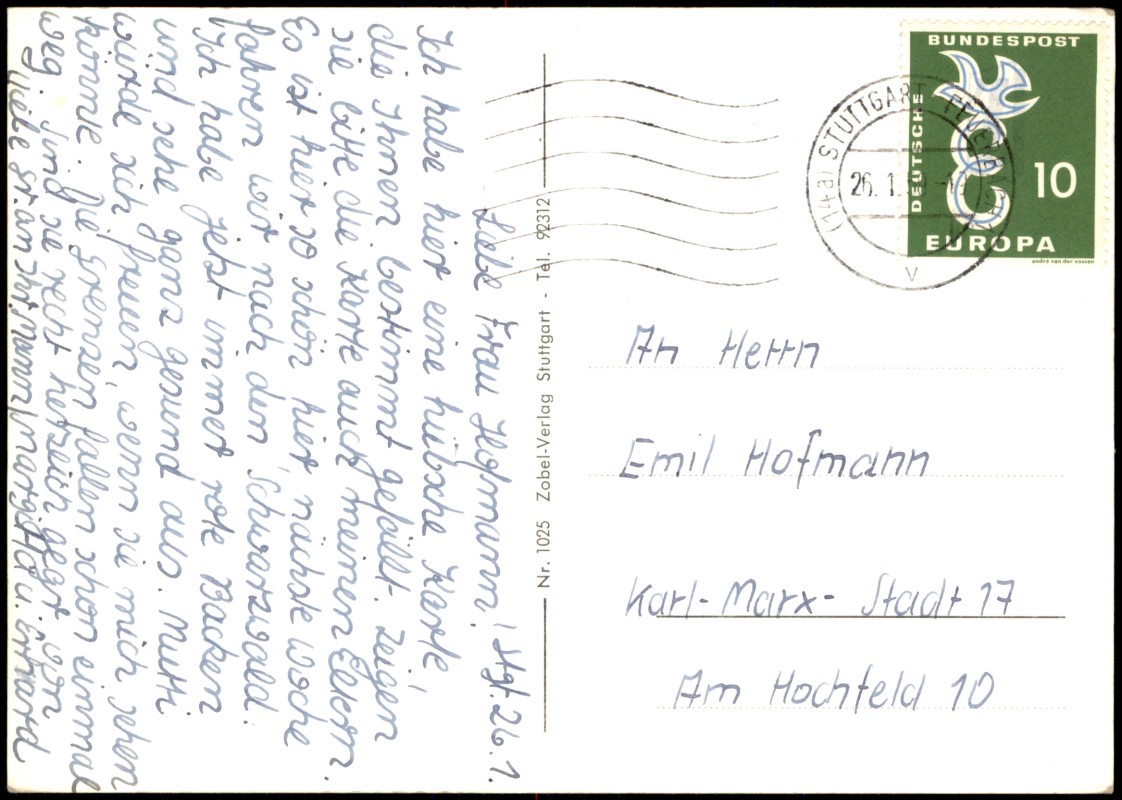 Liebe Frau Hofmann! Stgt. 26.1.
Ich habe hier eine hübsche Karte,
die Ihnen bestimmt gefällt. Zeigen
sie bitte die Karte auch meinen Eltern.
Es ist hier so schön hier nächste Woche
fahren wir nach den Schwarzwald.
Ich habe jetzt immer rote Backen
und sehe ganz gesund aus. Mutti
würde sich freuen, wenn sie mich sehen
könnte. Die Grenzen fallen schon einmal
weg. Sind sie recht herzlich gegrüßt von
Margitta u. Erhard
viele Gr. an Ihr. Mann
Nr. 1025 Zobel-Verlag Stuttgart - Tel. 92312
DEUTSCHE BUNDESPOST
10
EUROPA
andré van der vossen
(14a) STUTTGART
26.1.59
V
An Herrn
Emil Hofmann
Karl-Marx-Stadt 17
Am Hochfeld 10